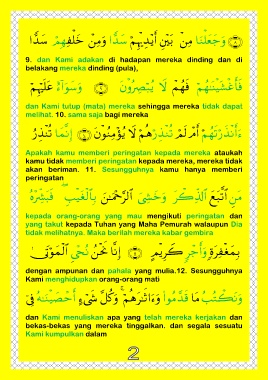 وَجَعَلْنَا مِنۢ بَيْنِ أَيْدِيهِمْ سَدًّا وَمِنْ خَلْفِهِمْ سَدًّا
9. dan Kami adakan di hadapan mereka dinding dan di
belakang mereka dinding (pula),
فَأَغْشَيْنَٰهُمْ فَهُمْ لَا يُبْصِرُونَ وَسَوَآءٌ عَلَيْهِمْ
dan Kami tutup (mata) mereka sehingga mereka tidak dapat
melihat. 10. sama saja bagi mereka
ءَأَنذَرْتَهُمْ أَمْ لَمْ تُنذِرْهُمْ لَا يُؤْمِنُونَ إِنَّمَا تُنذِرُ
Apakah kamu memberi peringatan kepada mereka ataukah
kamu tidak memberi peringatan kepada mereka, mereka tidak
akan beriman. 11. Sesungguhnya kamu hanya memberi
peringatan
مَنِ ٱتَّبَعَ ٱلذِّكْرَ وَخَشِىَ ٱلرَّحْمَٰنَ بِٱلْغَيْبِ فَبَشِّرْهُ
kepada orang-orang yang mau mengikuti peringatan dan
yang takut kepada Tuhan yang Maha Pemurah walaupun Dia
tidak melihatnya. Maka berilah mereka kabar gembira
بِمَغْفِرَةٍ وَأَجْرٍ كَرِيمٍ إِنَّا نَحْنُ نُحْىِ ٱلْمَوْتَىٰ
dengan ampunan dan pahala yang mulia.12. Sesungguhnya
Kami menghidupkan orang-orang mati
وَنَكْتُبُ مَا قَدَّمُوا۟ وَءَاثَٰرَهُمْ وَكُلَّ شَىْءٍ أَحْصَيْنَٰهُ فِىٓ
dan Kami menuliskan apa yang telah mereka kerjakan dan
bekas-bekas yang mereka tinggalkan. dan segala sesuatu
Kami kumpulkan dalam
2